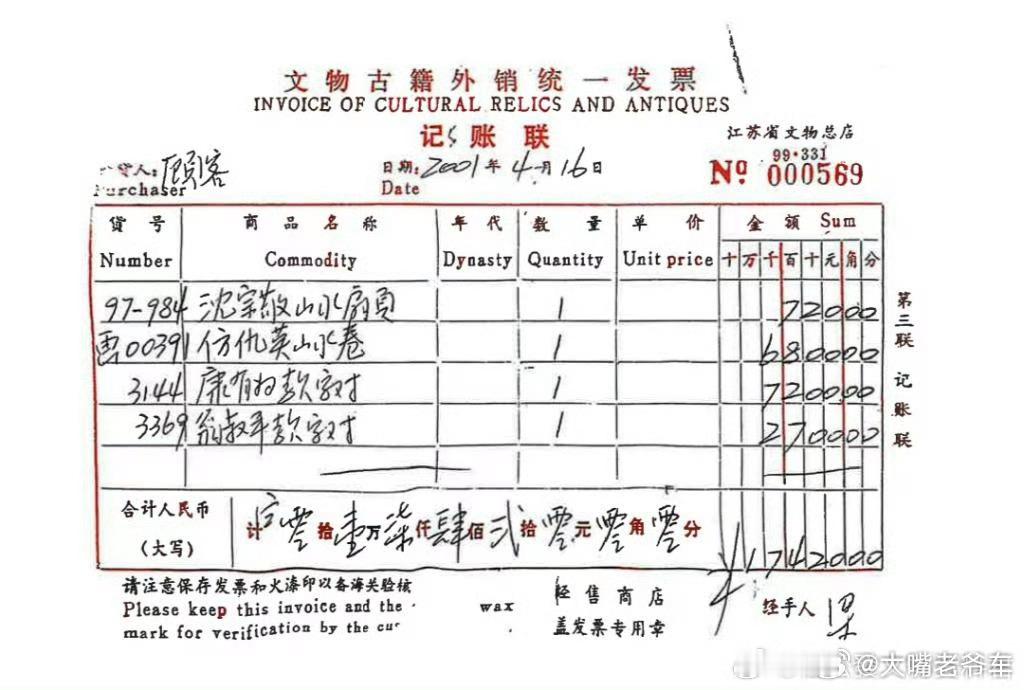 文物古籍外销统一发票
INVOICE OF CULTURAL RELICS AND ANTIQUES
记账联
江苏省文物总店
99·331
№ 000569
货人:顾客
Purchaser
日期:2001年4月16日
Date
货号 商品名称 年代 数量 单价 金额 Sum
Number Commodity Dynasty Quantity Unit price 十万千百十元角分
97-984 沈宗敬山水扇页 1 72000
00391 仿仇英山水卷 1 680000
3144 康有为款字对 1 720000
3369 翁叔平款字对 1 270000
合计人民币
(大写)
计 零拾壹万柒仟肆佰贰拾零元零角零分 ¥1742000
请注意保存发票和火漆印以备海关验核
Please keep this invoice and the wax
mark for verification by the cu
经售商店
盖发票专用章
经手人
第三联 记账联
@大嘴老爷车